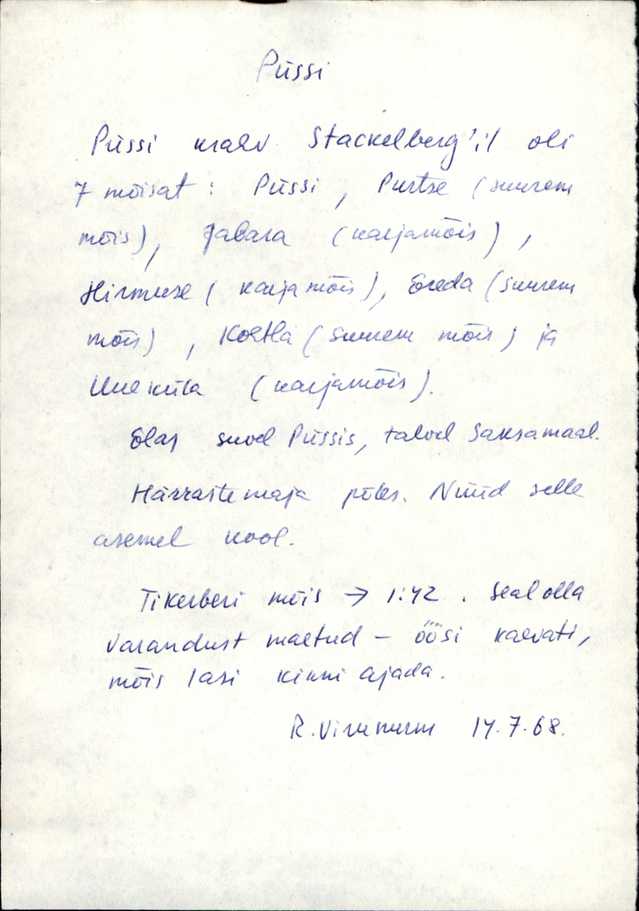 Püssi
Püssi krahv Stackelberg'il oli
7 mõisat: Püssi, Purtse (suurem
mõis), Jabara (karjamõis),
Hirmuse (karjamõis), Ereda (suurem
mõis), Kohtla (suurem mõis) ja
Uueküla (karjamõis).
Elas suvel Püssis, talvel Saksamaal.
Härraste maja põles. Nüüd selle
asemel kool.
Tikerberi mõis → 1:42. Seal olla
varandust maetud – öösi kaevati,
mõis lasi kinni ajada.
R. Virunurm 14.7.68.